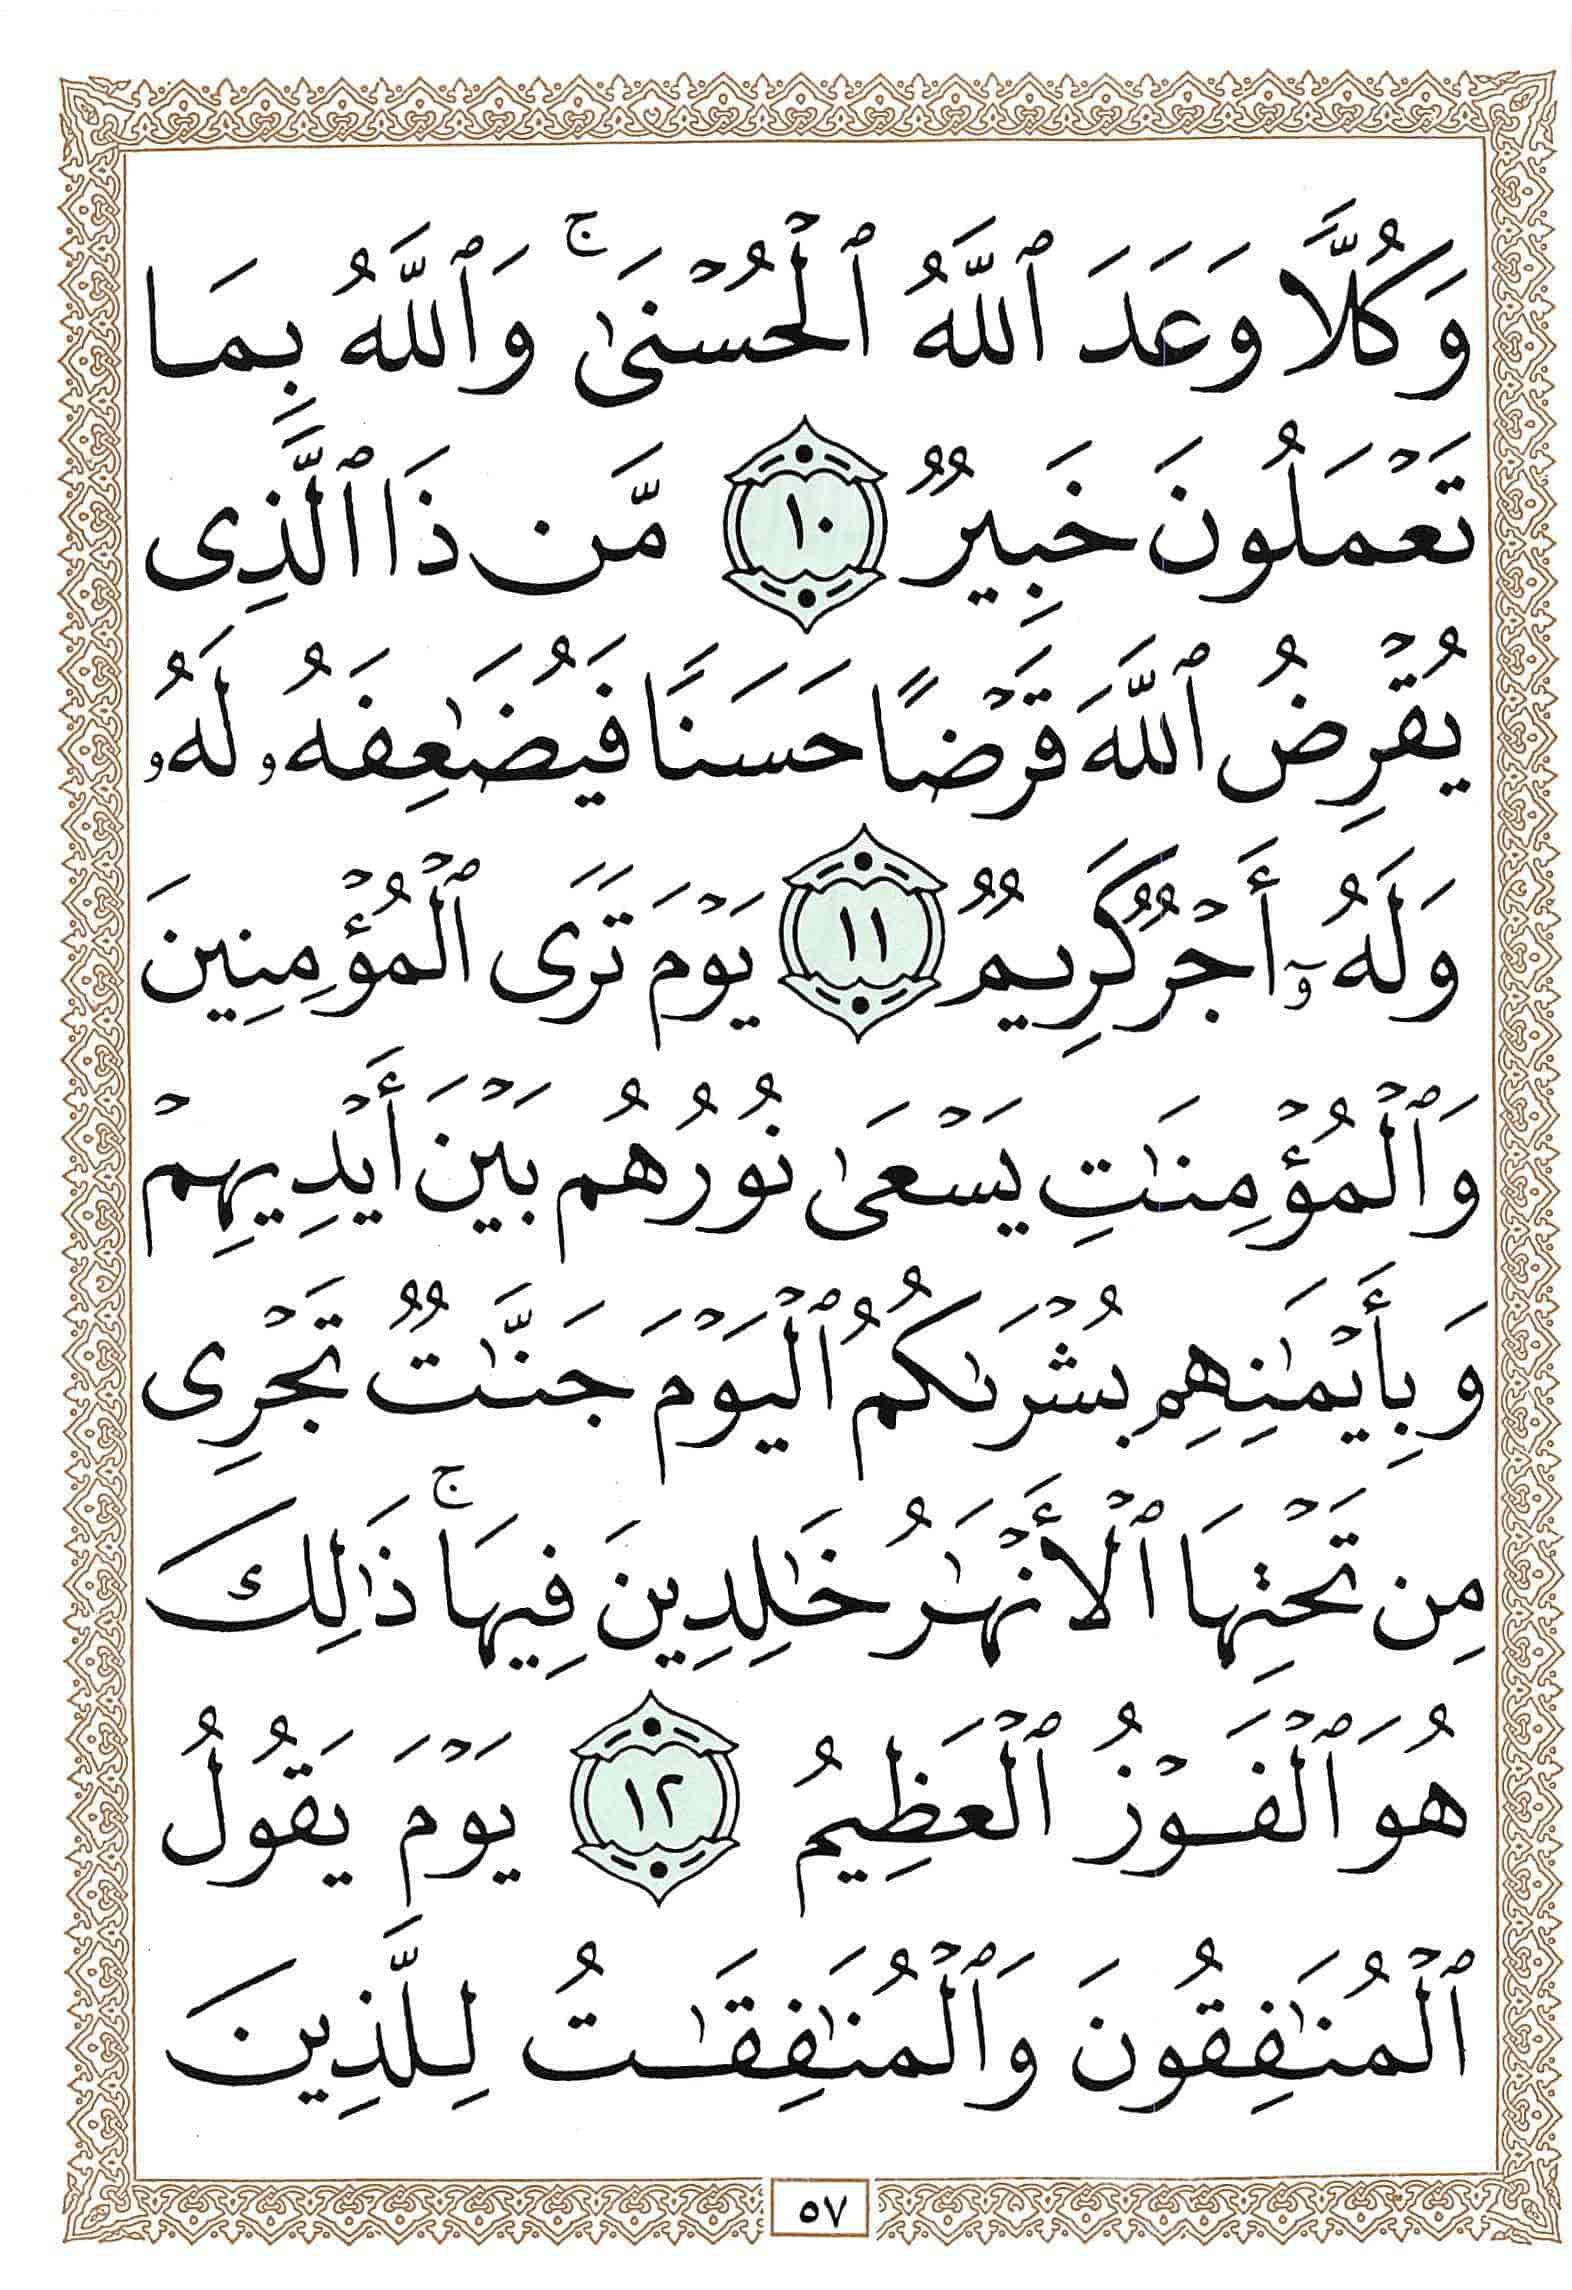 وَكُلًّا وَعَدَ ٱللَّهُ ٱلْحُسْنَىٰ ۚ وَٱللَّهُ بِمَا
تَعْمَلُونَ خَبِيرٌ ١٠ مَّن ذَا ٱلَّذِى
يُقْرِضُ ٱللَّهَ قَرْضًا حَسَنًا فَيُضَٰعِفَهُۥ لَهُۥ
وَلَهُۥٓ أَجْرٌ كَرِيمٌ ١١ يَوْمَ تَرَى ٱلْمُؤْمِنِينَ
وَٱلْمُؤْمِنَٰتِ يَسْعَىٰ نُورُهُم بَيْنَ أَيْدِيهِمْ
وَبِأَيْمَٰنِهِم بُشْرَىٰكُمُ ٱلْيَوْمَ جَنَّٰتٌ تَجْرِى
مِن تَحْتِهَا ٱلْأَنْهَٰرُ خَٰلِدِينَ فِيهَا ۚ ذَٰلِكَ
هُوَ ٱلْفَوْزُ ٱلْعَظِيمُ ١٢ يَوْمَ يَقُولُ
ٱلْمُنَٰفِقُونَ وَٱلْمُنَٰفِقَٰتُ لِلَّذِينَ
٥٧